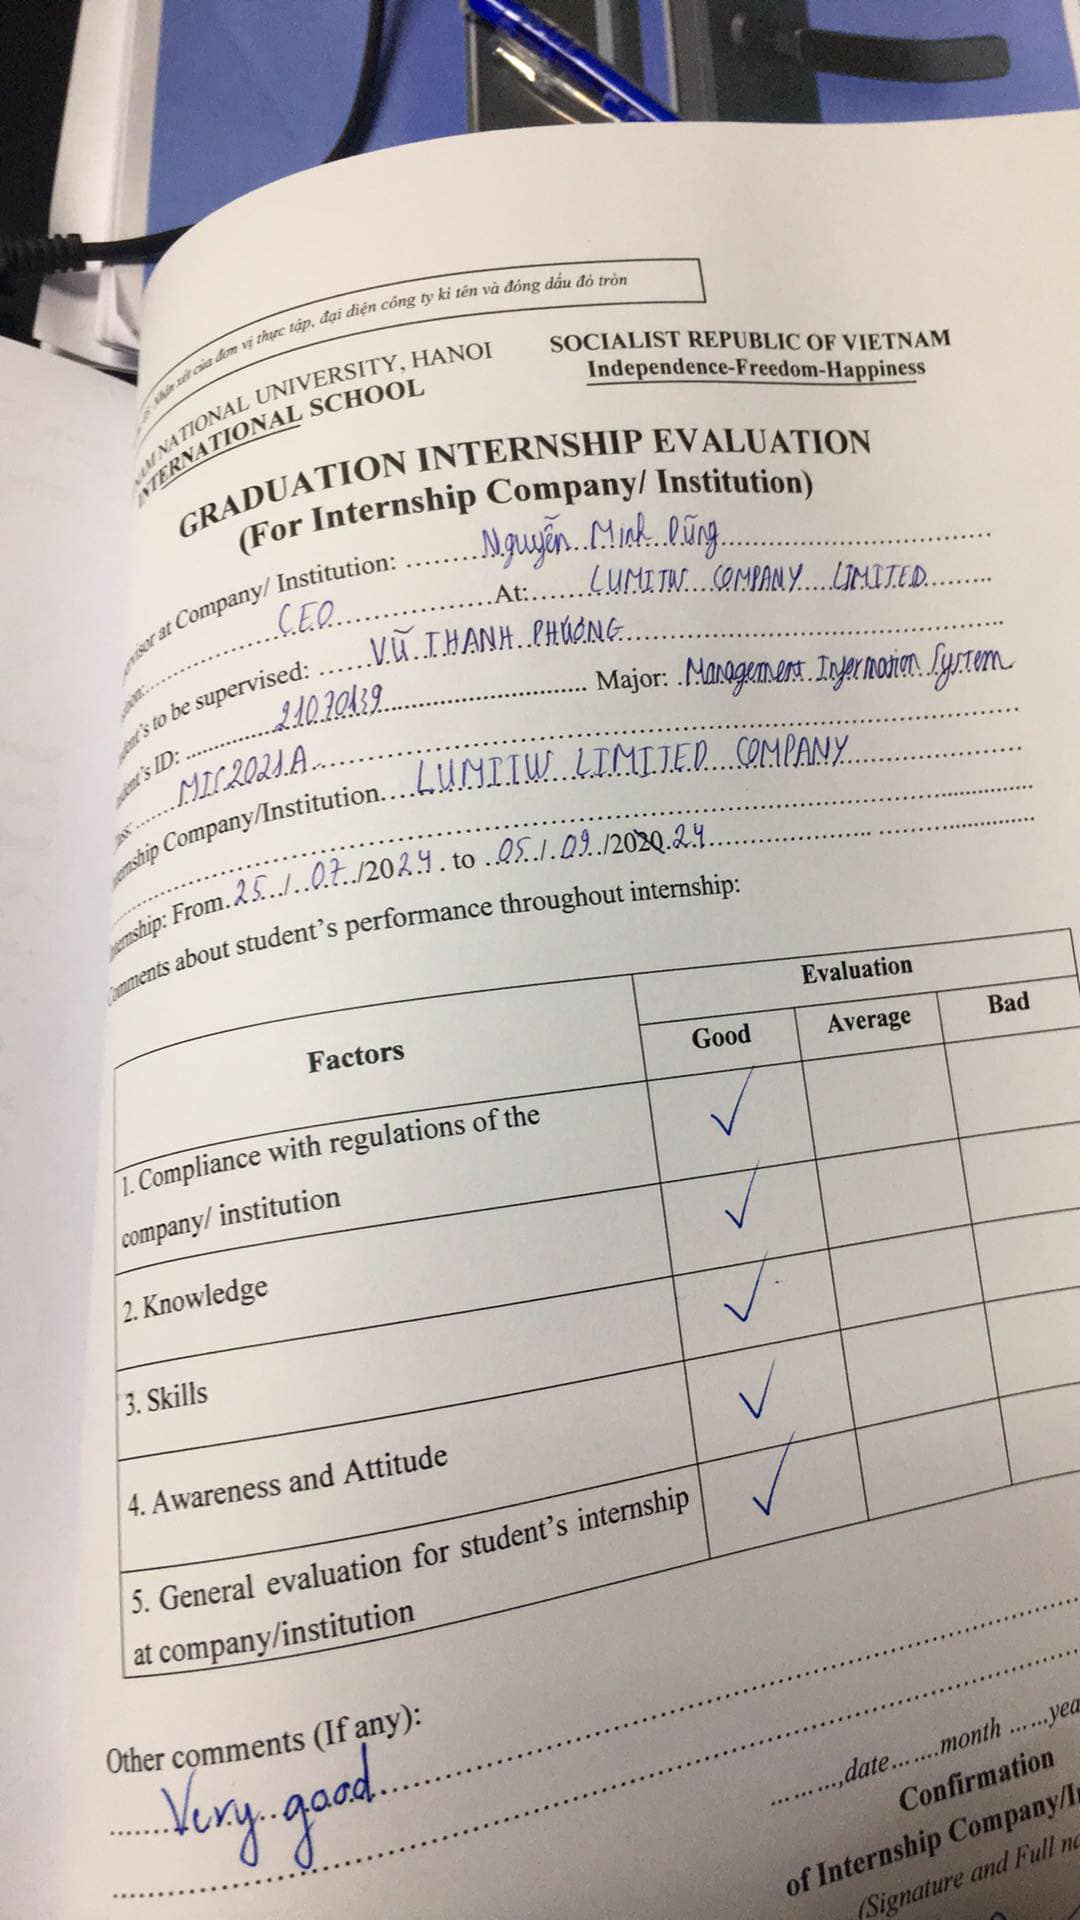 Nhận xét của đơn vị thực tập, đại diện công ty kí tên và đóng dấu đỏ tròn
NATIONAL UNIVERSITY, HANOI
INTERNATIONAL SCHOOL
SOCIALIST REPUBLIC OF VIETNAM
Independence-Freedom-Happiness
GRADUATION INTERNSHIP EVALUATION
(For Internship Company/ Institution)
at Company/ Institution: ........Nguyễn Minh Dũng
CEO At: LUMITW COMPANY LIMITED
to be supervised: VŨ THANH PHƯƠNG
ID: 21070139 Major: Management Information System
MIS2021A
Company/Institution.... LUMITW LIMITED COMPANY
From. 25../..07../2024. to ..05./.09../2020.24
about student's performance throughout internship:
Factors
Evaluation
Good
Average
Bad
1. Compliance with regulations of the
company/ institution
✓
2. Knowledge
✓
3. Skills
✓
4. Awareness and Attitude
✓
5. General evaluation for student's internship
at company/institution
✓
Other comments (If any):
Very good
........,date.......month ......
Confirmation
of Internship Company/
(Signature and Full